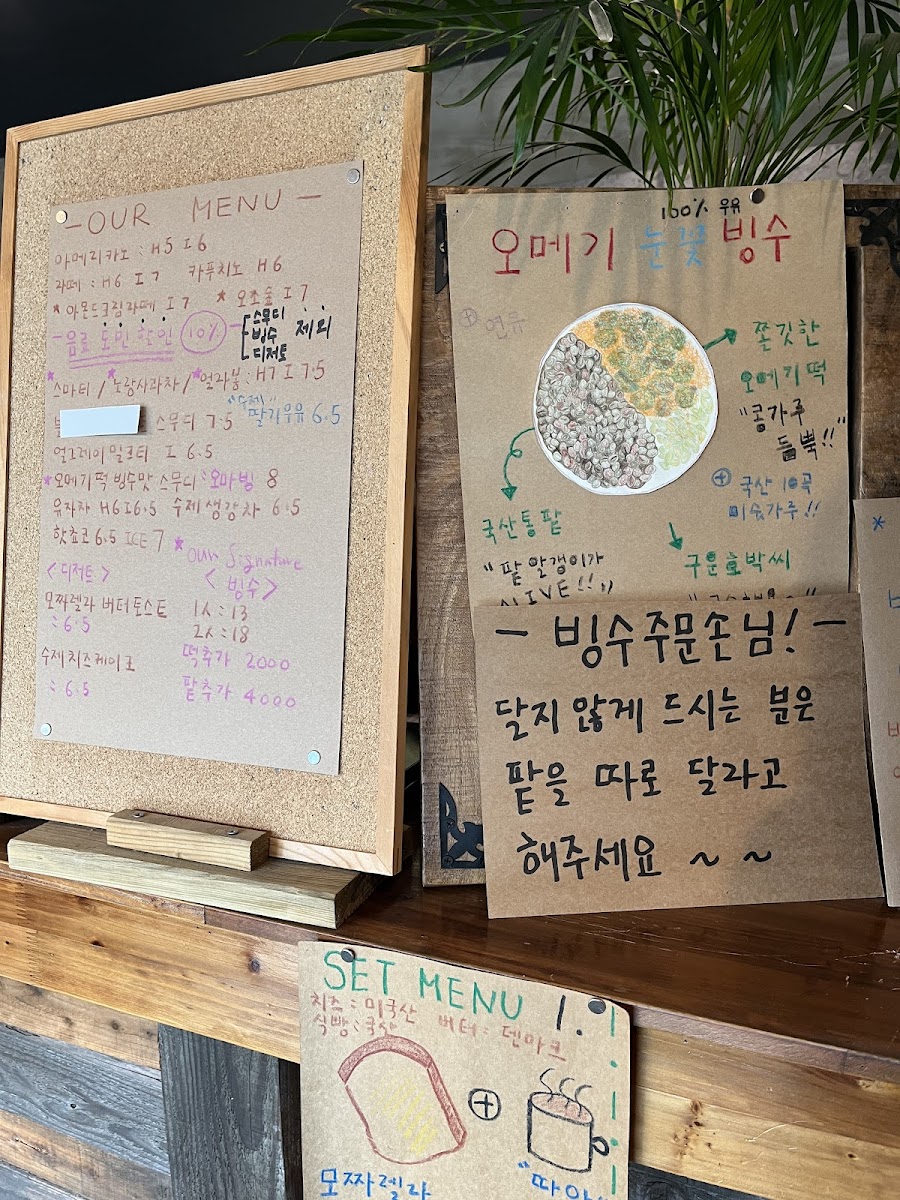 - OUR MENU -
아메리카노 : H5 I6
라떼 : H6 I7 카푸치노 H6
* 아몬드크림라떼 I7 * 오초숲 I7
- 음료 도민 할인 10% - [스무디 빙수 디저트 제외
* 스마티 / * 노랑사과차 / * 얼라봉 : H7 I7.5
스무디 7.5 "수제" 딸기우유 6.5
얼그레이밀크티 I 6.5
* 오메기떡 빙수맛 스무디 : 오마빙 8
유자차 H6 I6.5 수제생강차 6.5
핫쵸코 6.5 ICE 7
* our Signature
<디저트>
<빙수>
모짜렐라 버터토스트
: 6.5
1人 : 13
2人 : 18
수제치즈케이크
: 6.5
떡추가 2000
팥추가 4000
100% 우유
오메기 눈꽃 빙수
+ 연유
쫄깃한
오메기떡
"콩가루
듬뿍!!"
+ 국산 10곡
미숫가루!!
국산통팥
"팥 알갱이가
ALIVE!!"
구운호박씨
- 빙수주문손님! -
달지 않게 드시는 분은
팥을 따로 달라고
해주세요 ~ ~
SET MENU 1.
치즈 : 미국산 버터 : 덴마크
식빵 : 국산
+
모짜렐라
"따아